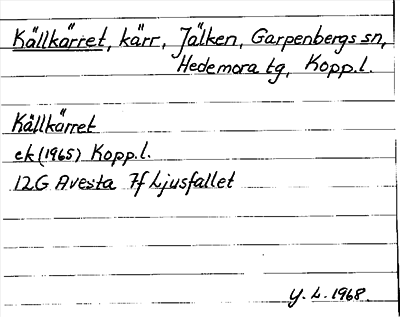 Källkärret, kärr, Jälken, Garpenbergs sn,
Hedemora tg, Kopp.l.
Källkärret
ek (1965) Kopp.l.
12G Avesta 7f Ljusfallet
Y. L. 1968.